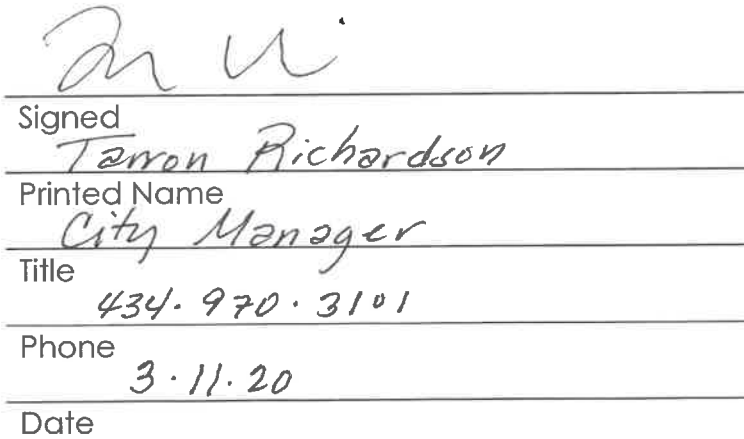 Signed
Tarron Richardson
Printed Name
City Manager
Title
434. 970. 3101
Phone
3.11.20
Date